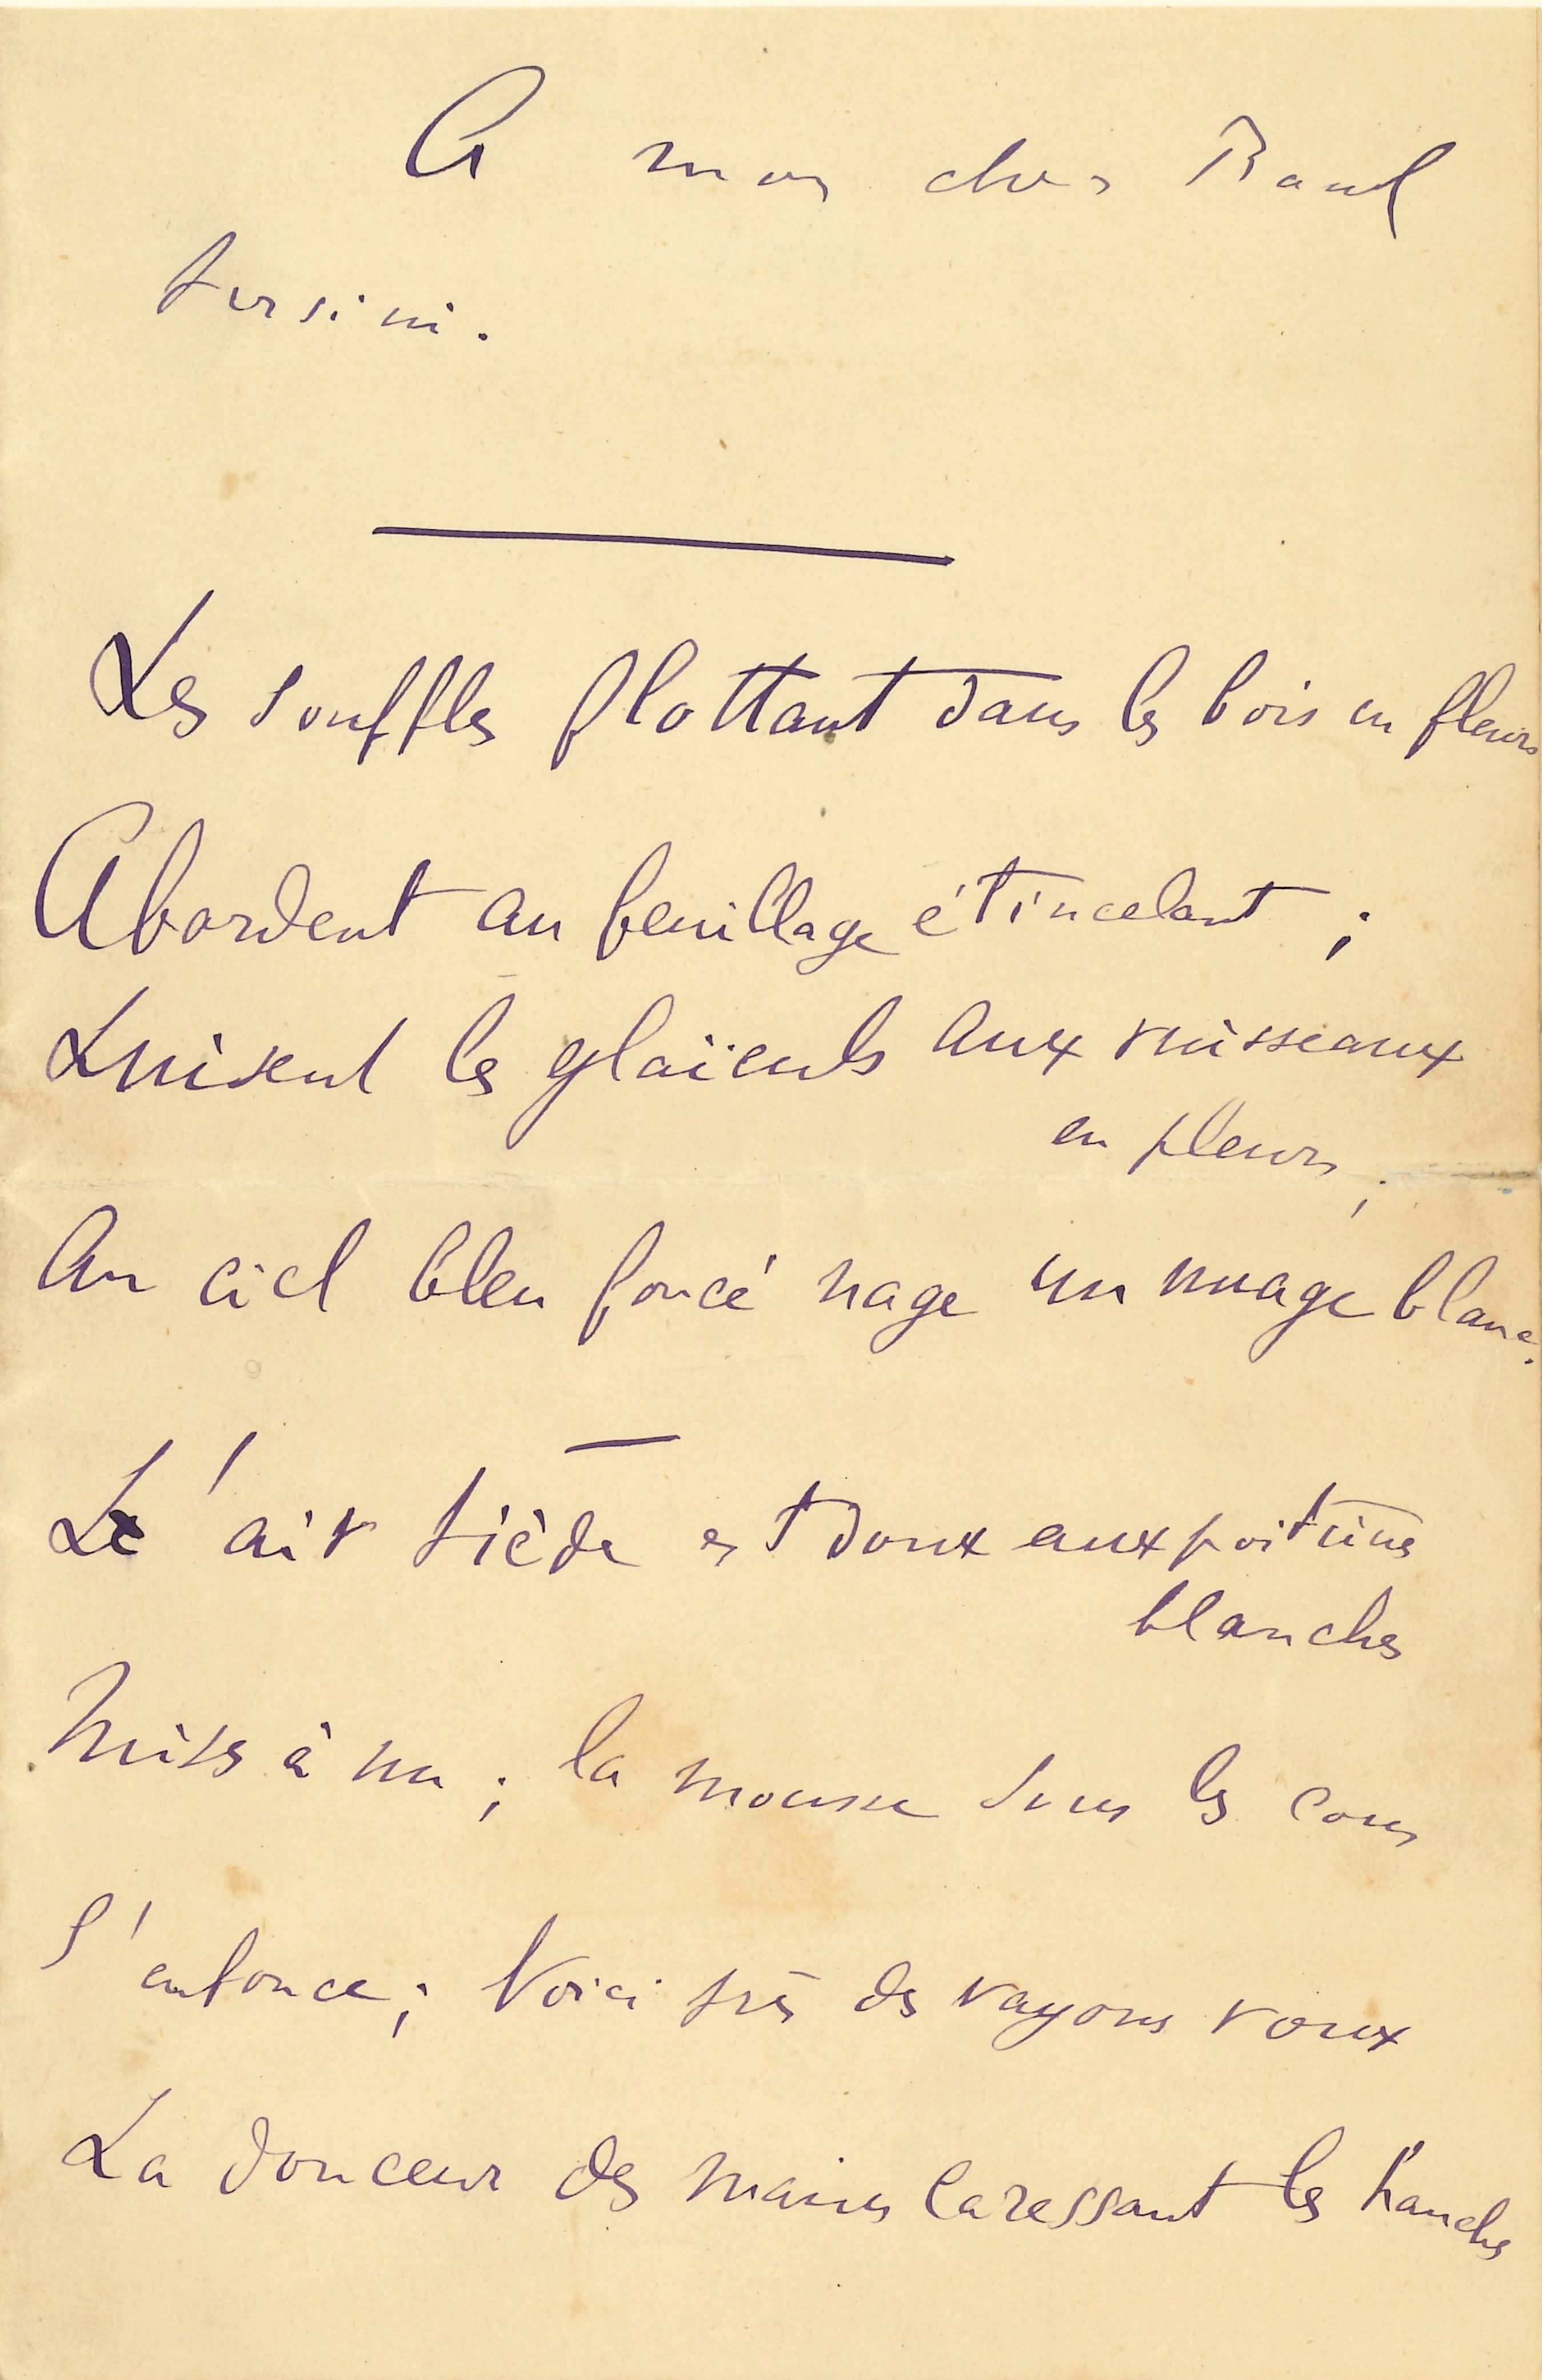 A mon cher Raoul
Tersini.
Les souffles flottant dans les bois en fleurs
Abordent au feuillage étincelant ;
Luisent les glaïeuls aux ruisseaux
en pleurs ;
Au ciel bleu foncé nage un nuage blanc.
L'air tiède est doux aux poitrines
blanches
Mises à nu ; la mousse sous les cous
S'enfonce ; Voici près des rayons roux
La douceur des mains caressant les hanches